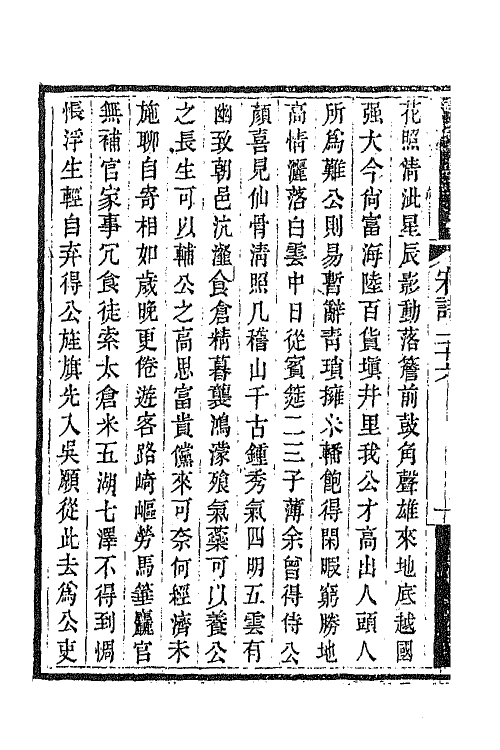 花照清泚星辰影動落簷前鼓角聲雄來地底越國
强大今尚富海陸百貨塡井里我公才高出人頭人
所爲難公則易暫辭靑瑣擁朱轓飽得閑暇窮勝地
高情灑落白雲中日從賓筵二三子薄余曾得侍公
顔喜見仙骨淸照几稽山千古鍾秀氣四明五雲有
幽致朝邑沆瀣食倉精暮襲鴻濛飱氣藥可以養公
之長生可以輔公之高思富貴儻來可奈何經濟未
施聊自寄相如歲晚更倦遊客路崎嶇勞馬箠麤官
無補官家事冗食徒索太倉米五湖七澤不得到惆
悵浮生輕自弃得公旌旗先入吳願從此去爲公吏
宋詩 二十六